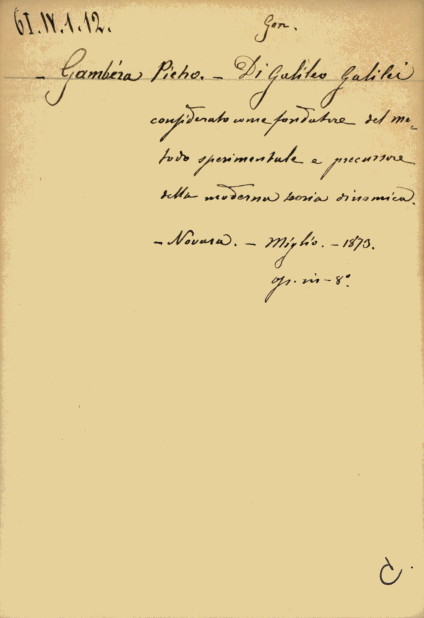 61.IV.1.12.
Gen.
- Gambéra Pietro. - Di Galileo Galilei
considerato come fondatore del me-
todo sperimentale e precursore
della moderna teoria dinamica.
- Novara. - Miglio. - 1873.
op. in - 8°.
C.